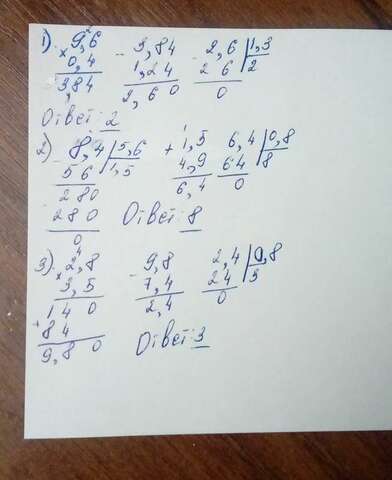 1) 9,6 - 3,84 - 2,6 | 1,3
× 0,4 1,24 2 6 2
3,84 2,6 0 0
Ответ: 2
2) 8,4 | 5,6 + 1,5 6,4 | 0,8
- 5 6 1,5 4,9 64 8
280 6,4 0
- 280 Ответ: 8
0
3) × 2,8 - 9,8 2,4 | 0,8
3,5 7,4 24 3
1 4 0 2,4 0
+ 8 4
9,8 0 Ответ: 3